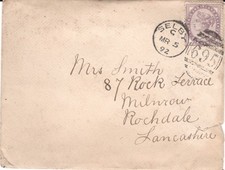 SELBY
C
MR 5
92
695
Mrs Smith
87 Rock Terrace
Milnrow
Rochdale
Lancashire